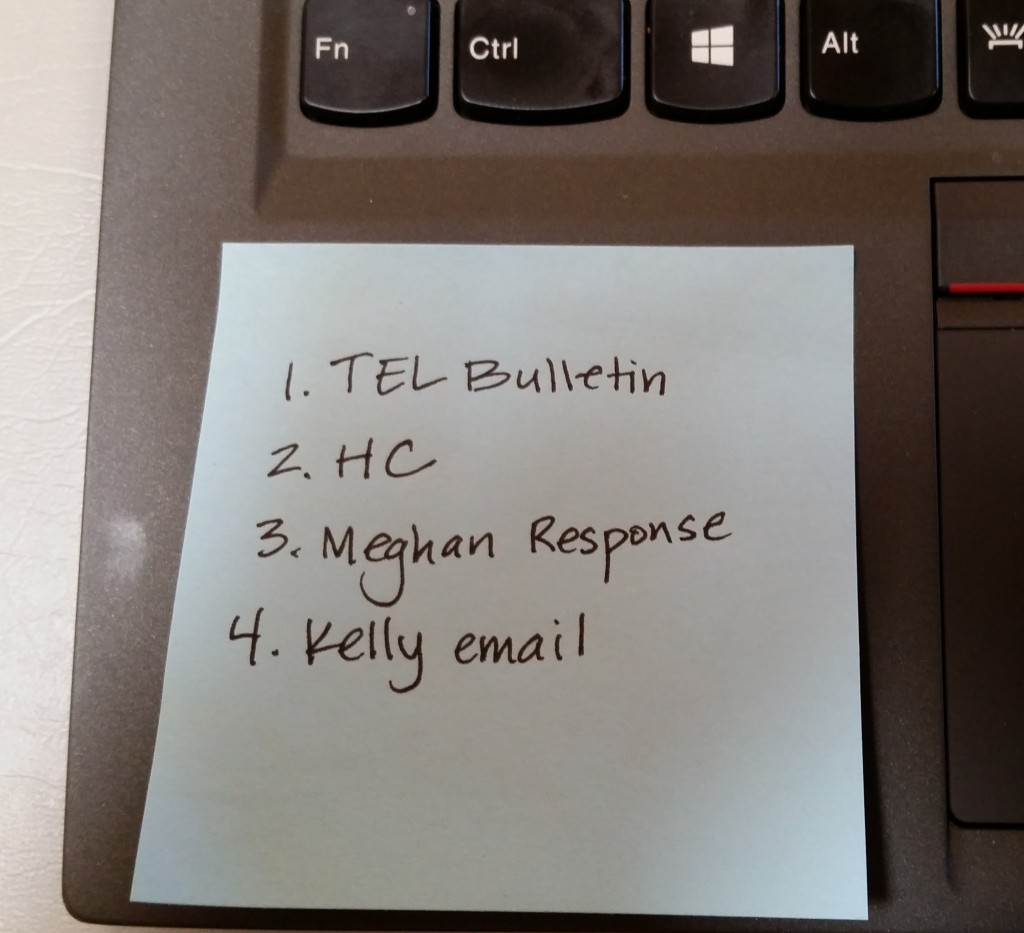 Fn Ctrl Alt
1. TEL Bulletin
2. HC
3. Meghan Response
4. Kelly email